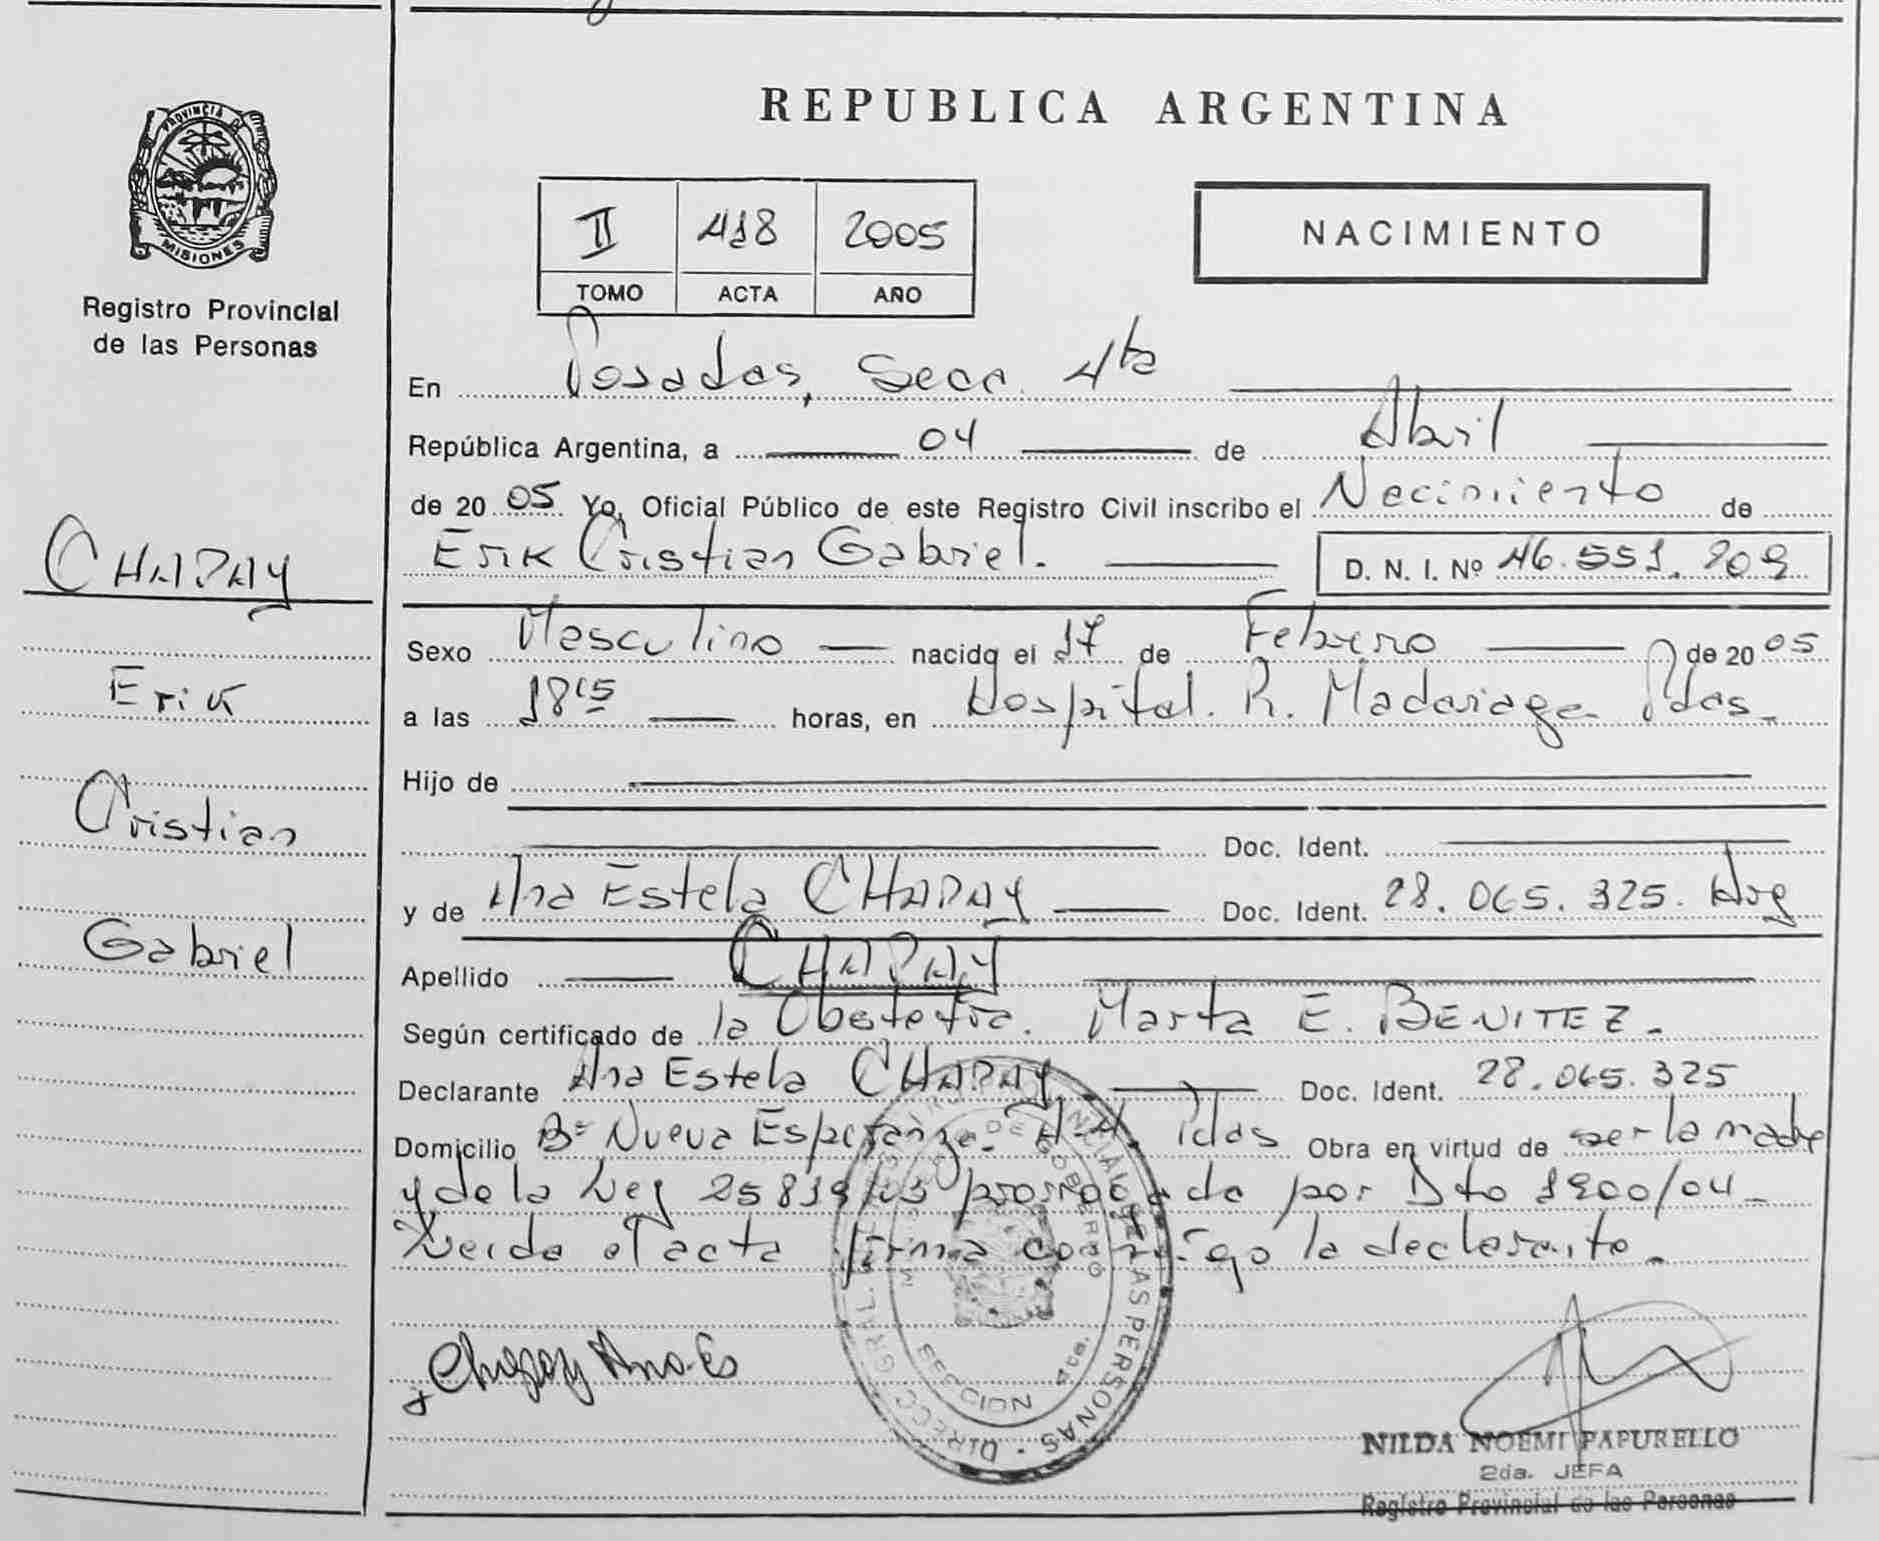 REPUBLICA ARGENTINA
PROVINCIA DE
MISIONES
Registro Provincial
de las Personas
II 418 2005
TOMO ACTA AÑO
NACIMIENTO
En Posadas, Secc. 4ta
República Argentina, a 04 de Abril
de 20 05 Yo, Oficial Público de este Registro Civil inscribo el Nacimiento de
Erik Cristian Gabriel. D. N. I. Nº 46.551.209
CHAPAY
Erik
Cristian
Gabriel
Sexo Masculino nacido el 17 de Febrero de 20 05
a las 18 15 horas, en Hospital. R. Madariaga Pdas.
Hijo de
Doc. Ident.
y de Ana Estela CHAPAY Doc. Ident. 28.065.325. Arg
Apellido CHAPAY
Según certificado de la Obstetra. Marta E. BENITEZ.
Declarante Ana Estela CHAPAY Doc. Ident. 28.065.325
Domicilio Bº Nueva Esperanza. Pdas Obra en virtud de ser la madre
y de la Ley 25819/03 prorrogada por Dto 1900/04
Leida el acta firma conmigo la declarante.
Chapay Ana Es
DIRECC. GRAL. DE REGISTRO PROVINCIAL DE LAS PERSONAS
DE GOBIERNO
SECCION 4ta.
NILDA NOEMI PAPURELLO
2da. JEFA
Registro Provincial de las Personas